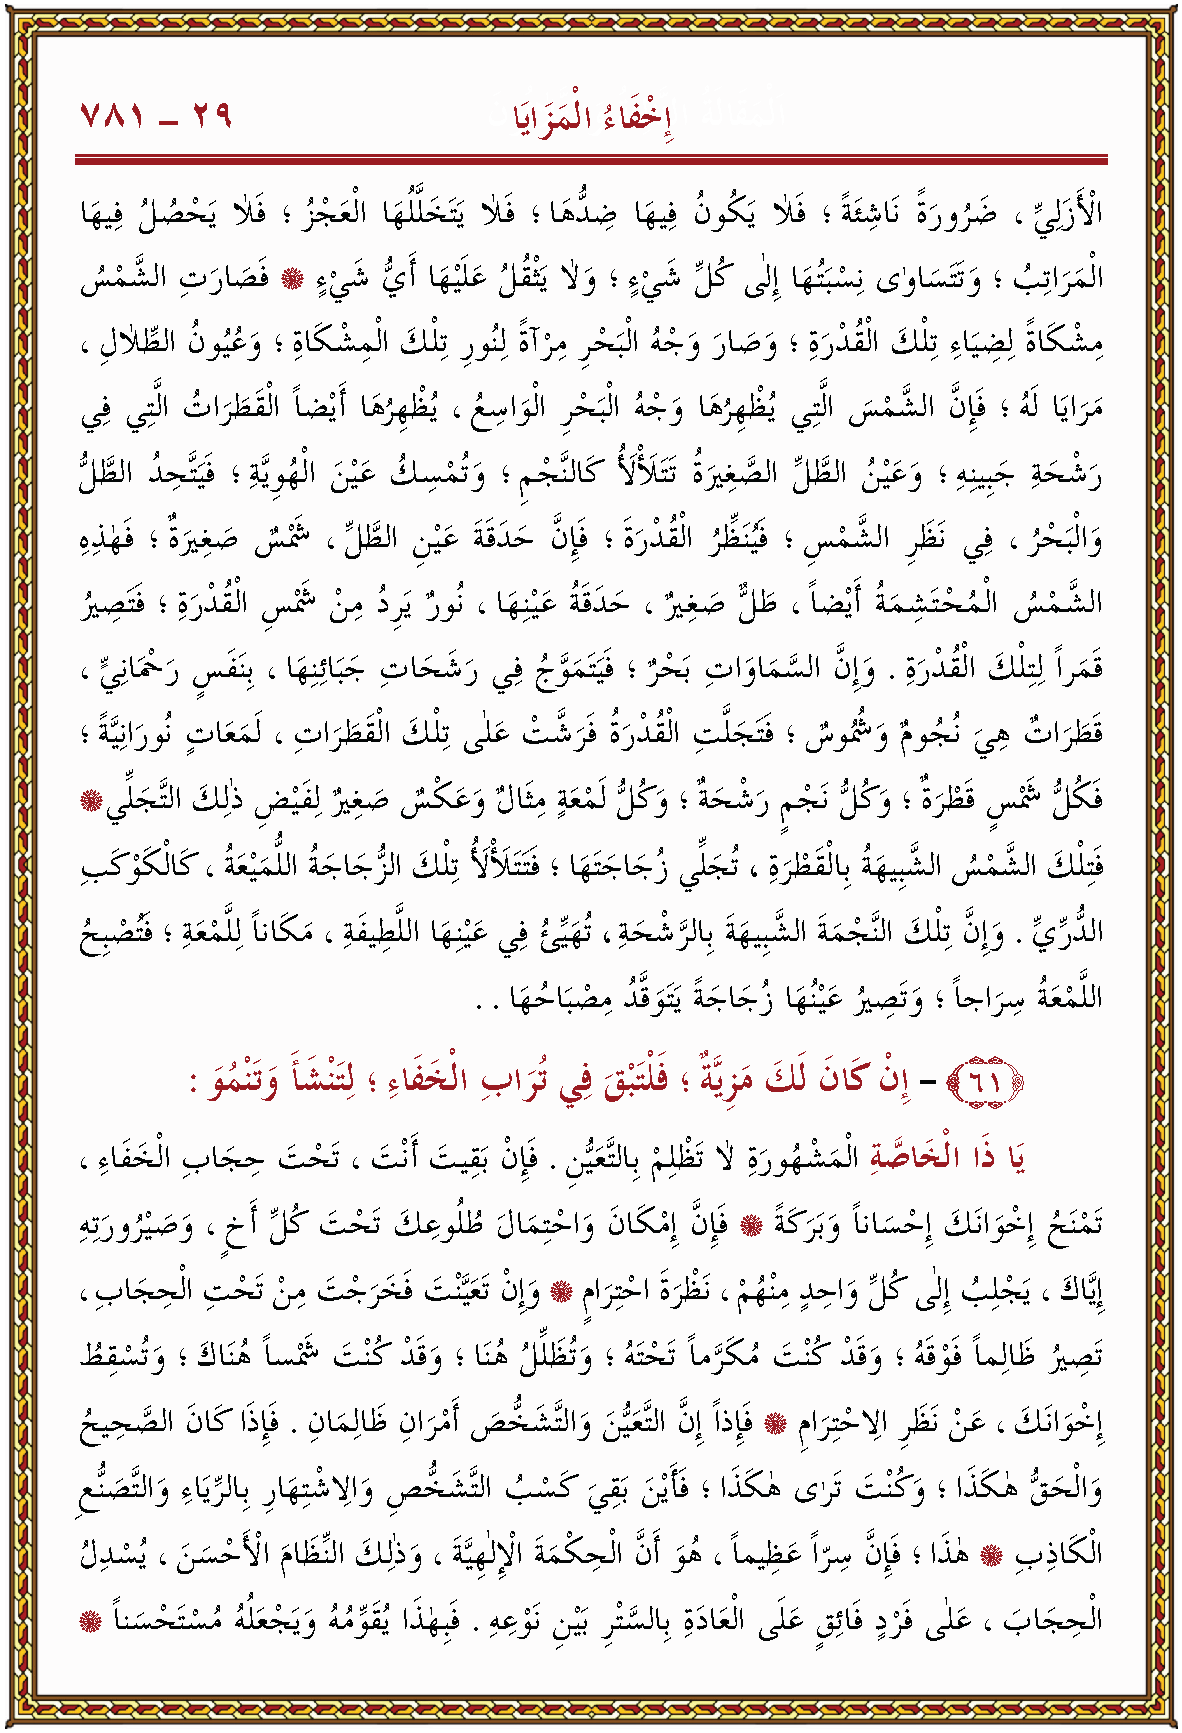 إِخْفَاءُ الْمَزَايَا ٢٩ ــ ٧٨١
الْأَزَلِيِّ ، ضَرُورَةً نَاشِئَةً ؛ فَلَا يَكُونُ فِيهَا ضِدُّهَا ؛ فَلَا يَتَخَلَّلُهَا الْعَجْزُ ؛ فَلَا يَحْصُلُ فِيهَا
الْمَرَاتِبُ ؛ وَتَتَسَاوٰى نِسْبَتُهَا إِلٰى كُلِّ شَيْءٍ ؛ وَلَا يَثْقُلُ عَلَيْهَا أَيُّ شَيْءٍ ۞ فَصَارَتِ الشَّمْسُ
مِشْكَاةً لِضِيَاءِ تِلْكَ الْقُدْرَةِ ؛ وَصَارَ وَجْهُ الْبَحْرِ مِرْآةً لِنُورِ تِلْكَ الْمِشْكَاةِ ؛ وَعُيُونُ الطِّلَالِ ،
مَرَايَا لَهُ ؛ فَإِنَّ الشَّمْسَ الَّتِي يُظْهِرُهَا وَجْهُ الْبَحْرِ الْوَاسِعُ ، يُظْهِرُهَا أَيْضاً الْقَطَرَاتُ الَّتِي فِي
رَشْحَةِ جَبِينِهِ ؛ وَعَيْنُ الطَّلِّ الصَّغِيرَةُ تَتَلَأْلَأُ كَالنَّجْمِ ؛ وَتُمْسِكُ عَيْنَ الْهُوِيَّةِ ؛ فَيَتَّحِدُ الطَّلُّ
وَالْبَحْرُ ، فِي نَظَرِ الشَّمْسِ ؛ فَيُنَظِّرُ الْقُدْرَةَ ؛ فَإِنَّ حَدَقَةَ عَيْنِ الطَّلِّ ، شَمْسٌ صَغِيرَةٌ ؛ فَهٰذِهِ
الشَّمْسُ الْمُحْتَشِمَةُ أَيْضاً ، طَلٌّ صَغِيرٌ ، حَدَقَةُ عَيْنِهَا ، نُورٌ يَرِدُ مِنْ شَمْسِ الْقُدْرَةِ ؛ فَتَصِيرُ
قَمَراً لِتِلْكَ الْقُدْرَةِ . وَإِنَّ السَّمَاوَاتِ بَحْرٌ ؛ فَيَتَمَوَّجُ فِي رَشَحَاتِ جَبَائِنِهَا ، بِنَفَسٍ رَحْمَانِيٍّ ،
قَطَرَاتٌ هِيَ نُجُومٌ وَشُمُوسٌ ؛ فَتَجَلَّتِ الْقُدْرَةُ فَرَشَّتْ عَلٰى تِلْكَ الْقَطَرَاتِ ، لَمَعَاتٍ نُورَانِيَّةً ؛
فَكُلُّ شَمْسٍ قَطْرَةٌ ؛ وَكُلُّ نَجْمٍ رَشْحَةٌ ؛ وَكُلُّ لَمْعَةٍ مِثَالٌ وَعَكْسٌ صَغِيرٌ لِفَيْضِ ذٰلِكَ التَّجَلِّي ۞
فَتِلْكَ الشَّمْسُ الشَّبِيهَةُ بِالْقَطْرَةِ ، تُجَلِّي زُجَاجَتَهَا ؛ فَتَتَلَأْلَأُ تِلْكَ الزُّجَاجَةُ اللُّمَيْعَةُ ، كَالْكَوْكَبِ
الدُّرِّيِّ . وَإِنَّ تِلْكَ النَّجْمَةَ الشَّبِيهَةَ بِالرَّشْحَةِ ، تُهَيِّئُ فِي عَيْنِهَا اللَّطِيفَةِ ، مَكَاناً لِلَّمْعَةِ ؛ فَتُصْبِحُ
اللَّمْعَةُ سِرَاجاً ؛ وَتَصِيرُ عَيْنُهَا زُجَاجَةً يَتَوَقَّدُ مِصْبَاحُهَا . .
﴿٦١﴾ – إِنْ كَانَ لَكَ مَزِيَّةٌ ؛ فَلْتَبْقَ فِي تُرَابِ الْخَفَاءِ ؛ لِتَنْشَأَ وَتَنْمُوَ :
يَا ذَا الْخَاصَّةِ الْمَشْهُورَةِ لَا تَظْلِمْ بِالتَّعَيُّنِ . فَإِنْ بَقِيتَ أَنْتَ ، تَحْتَ حِجَابِ الْخَفَاءِ ،
تَمْنَحُ إِخْوَانَكَ إِحْسَاناً وَبَرَكَةً ۞ فَإِنَّ إِمْكَانَ وَاحْتِمَالَ طُلُوعِكَ تَحْتَ كُلِّ أَخٍ ، وَصَيْرُورَتِهِ
إِيَّاكَ ، يَجْلِبُ إِلٰى كُلِّ وَاحِدٍ مِنْهُمْ ، نَظْرَةَ احْتِرَامٍ ۞ وَإِنْ تَعَيَّنْتَ فَخَرَجْتَ مِنْ تَحْتِ الْحِجَابِ ،
تَصِيرُ ظَالِماً فَوْقَهُ ؛ وَقَدْ كُنْتَ مُكَرَّماً تَحْتَهُ ؛ وَتُظَلِّلُ هُنَا ؛ وَقَدْ كُنْتَ شَمْساً هُنَاكَ ؛ وَتُسْقِطُ
إِخْوَانَكَ ، عَنْ نَظَرِ الِاحْتِرَامِ ۞ فَإِذاً إِنَّ التَّعَيُّنَ وَالتَّشَخُّصَ أَمْرَانِ ظَالِمَانِ . فَإِذَا كَانَ الصَّحِيحُ
وَالْحَقُّ هٰكَذَا ؛ وَكُنْتَ تَرٰى هٰكَذَا ؛ فَأَيْنَ بَقِيَ كَسْبُ التَّشَخُّصِ وَالِاشْتِهَارِ بِالرِّيَاءِ وَالتَّصَنُّعِ
الْكَاذِبِ ۞ هٰذَا ؛ فَإِنَّ سِرّاً عَظِيماً ، هُوَ أَنَّ الْحِكْمَةَ الْإِلٰهِيَّةَ ، وَذٰلِكَ النِّظَامَ الْأَحْسَنَ ، يُسْدِلُ
الْحِجَابَ ، عَلٰى فَرْدٍ فَائِقٍ عَلَى الْعَادَةِ بِالسَّتْرِ بَيْنَ نَوْعِهِ . فَبِهٰذَا يُقَوِّمُهُ وَيَجْعَلُهُ مُسْتَحْسَناً ۞